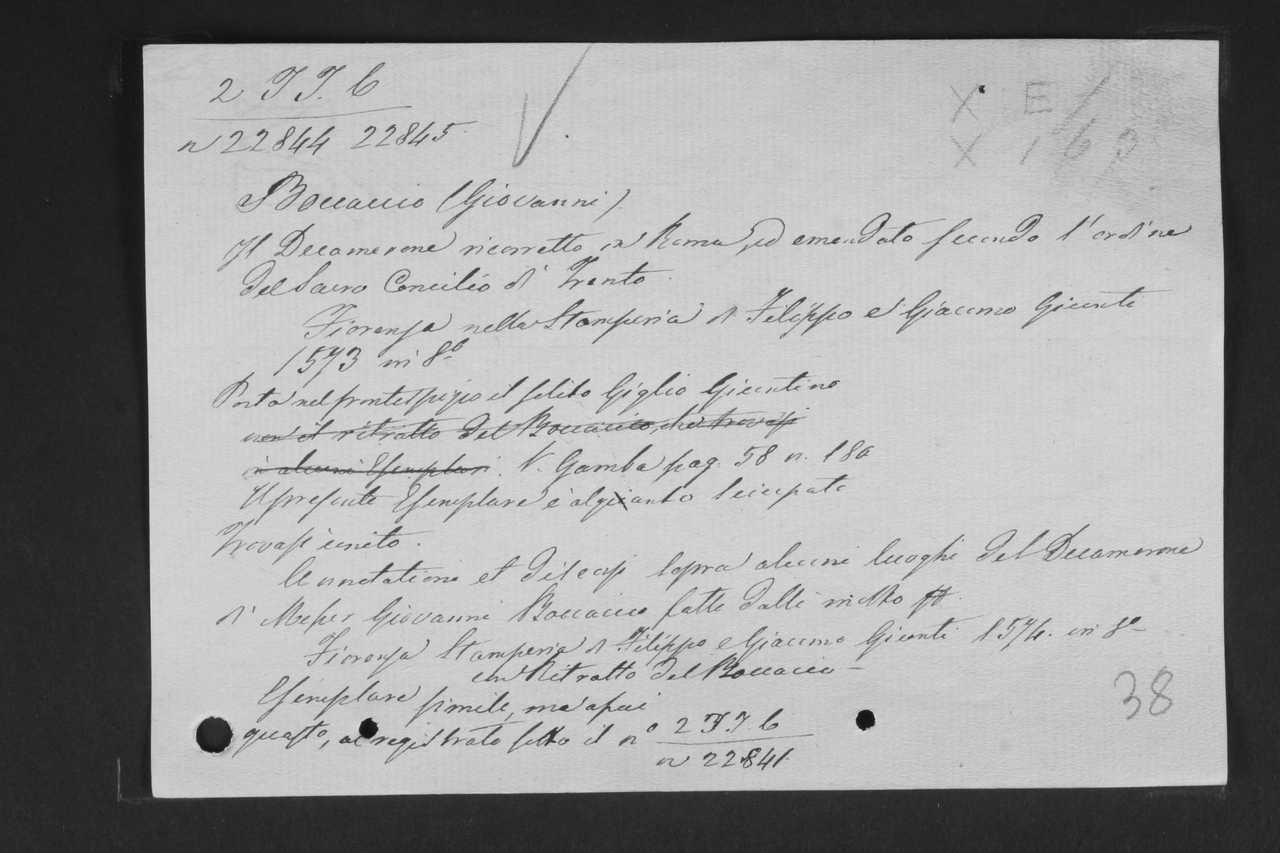 2 I I. 6
n 22844 22845.
X E
X 163
Boccaccio (Giovanni)
Il Decamerone ricorretto in Roma, ed emendato secondo l'ordine
del Sacro Concilio di Trento.
Fiorenza nella Stamperia di Filippo e Giacomo Giunti
1573 in 8º
Porta nel frontespizio il solito Giglio Giuntino
con il ritratto del Boccaccio, che trovasi
in alcuni Esemplari. V. Gamba pag. 58 n. 180
Il presente Esemplare è alquanto sciupato
Trovasi unito.
Annotationi et discorsi sopra alcuni luoghi del Decamerone
di Messer Giovanni Boccaccio fatte dalli
Fiorenza Stamperia di Filippo e Giacomo Giunti 1574. in 8º
con Ritratto del Boccaccio –
Esemplare simile, ma assai
guasto, al registrato sotto il nº 2 I I 6
n 22841
38